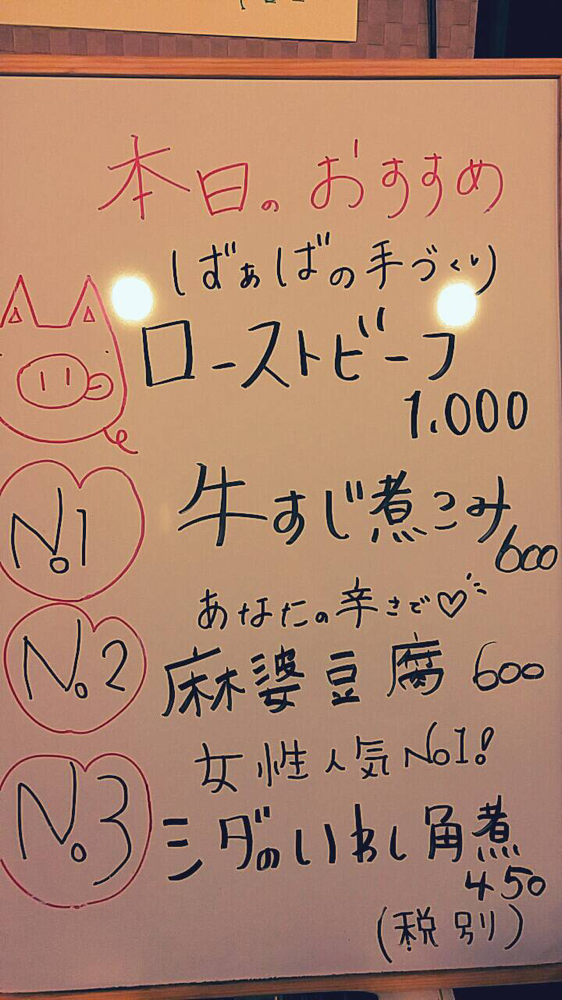 本日のおすすめ
ばぁばの手づくり
ローストビーフ
1.000
No1
牛すじ煮こみ
600
あなたの辛さで♡
No.2
麻婆豆腐 600
女性人気No1!
No.3
ミダのいわし角煮
450
(税別)